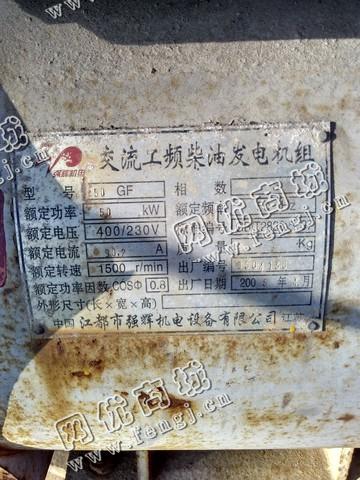 强辉机电 交流工频柴油发电机组
型号 50 GF 相数
额定功率 50 kW 额定频率
额定电压 400/230V
额定电流 90.2 A 量 Kg
额定转速 1500 r/min 出厂编号
额定功率因数COSΦ 0.8 出厂日期 200 年 月
外形尺寸(长×宽×高)
中国江都市强辉机电设备有限公司 江苏
网优商城
www.fengj.com
网优商城
www.fengj.com
网优商城
www.fengj.com